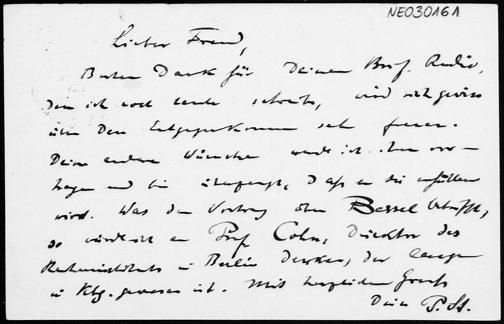 NE030161
Lieber Freund,
Besten Dank für Deinen Brief. Rudio,
dem ich noch heute schreibe, wird sich gewiss
über Dein Entgegenkommen sehr freuen.
Deine anderen Wünsche werde ich ihm vor-
tragen und bin überzeugt, dass er sie erfüllen
wird. Was den Vortrag über Bessel betrifft,
so würde ich an Prof. Cohn, Direktor des
Recheninstituts in Berlin denken, der lange
in Kbg. gewesen ist. Mit herzlichem Gruss
Dein P. St.